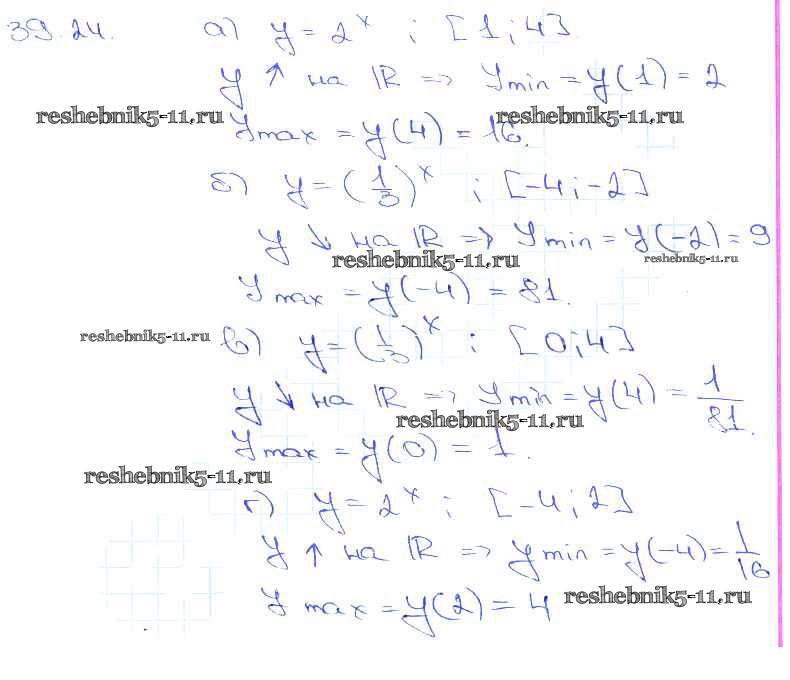 39.24. а) y = 2^x ; [1; 4].
y ↑ на ℝ => y min = y(1) = 2
reshebnik5-11.ru reshebnik5-11.ru
y max = y(4) = 16.
б) y = (1/3)^x ; [-4; -2]
y ↓ на ℝ => y min = y(-2) = 9
reshebnik5-11.ru reshebnik5-11.ru
y max = y(-4) = 81.
reshebnik5-11.ru в) y = (1/3)^x ; [0; 4]
y ↓ на ℝ => y min = y(4) = 1/81.
reshebnik5-11.ru
y max = y(0) = 1.
reshebnik5-11.ru
г) y = 2^x ; [-4; 2]
y ↑ на ℝ => y min = y(-4) = 1/16
y max = y(2) = 4 reshebnik5-11.ru